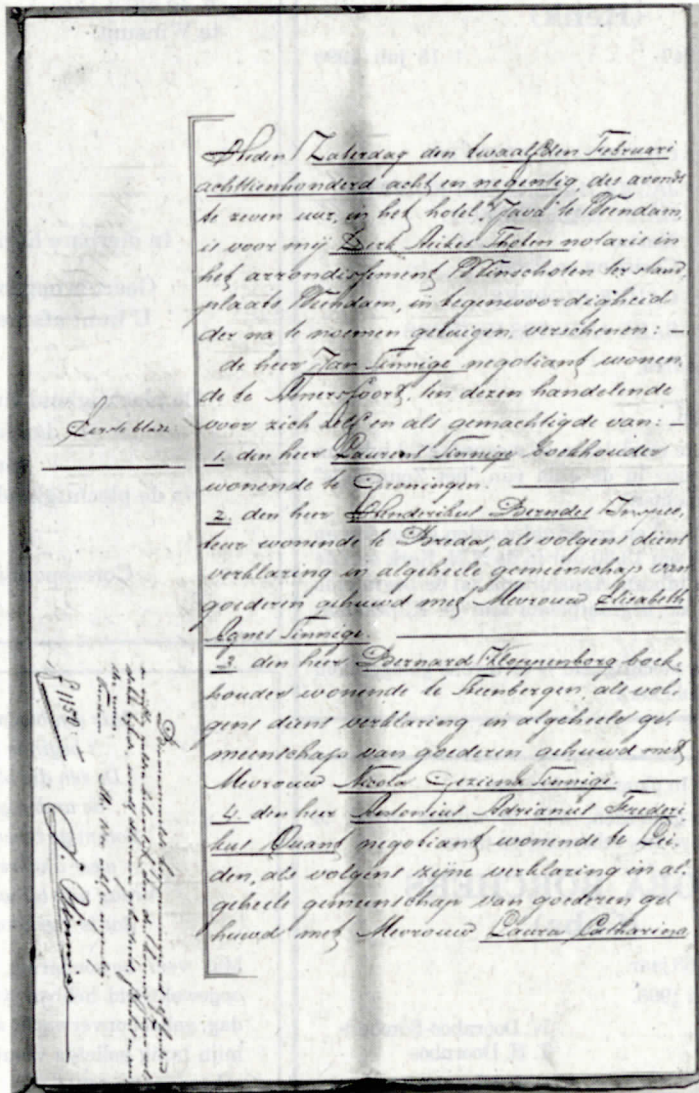 Heden Zaterdag den twaalfden Februari
achttienhonderd acht en negentig, des avonds
te zeven uur, in het hotel "Java" te Veendam,
is voor mij Derk Aeikes Tholen notaris in
het arrondissement Winschoten ter stand,
plaats Veendam, in tegenwoordigheid
der na te noemen getuigen, verschenen: —
de heer Jan Tinnige negotiant wonen,
de te Amersfoort, ten dezen handelende
voor zich zelf en als gemachtigde van: —
Eerste blad
1. den heer Laurens Tinnige boekhouder
wonende te Groningen.
2. den heer Henderikus Berndes
teur wonende te Breda als volgens diens
verklaring in algeheele gemeenschap van
goederen gehuwd met Mevrouw Elisabeth
Agnes Tinnige.
3. den heer Bernard Kloppenborg boek,
houder wonende te Steenbergen, als vol,
gens diens verklaring in algeheele ge,
meenschap van goederen gehuwd met
Mevrouw Nicola Geziena Tinnige.
4. den heer Antonius Adrianus Frederi
kus Quant negotiant wonende te Lei,
den, als volgens zijne verklaring in al,
geheele gemeenschap van goederen ge,
huwd met Mevrouw Laura Catharina